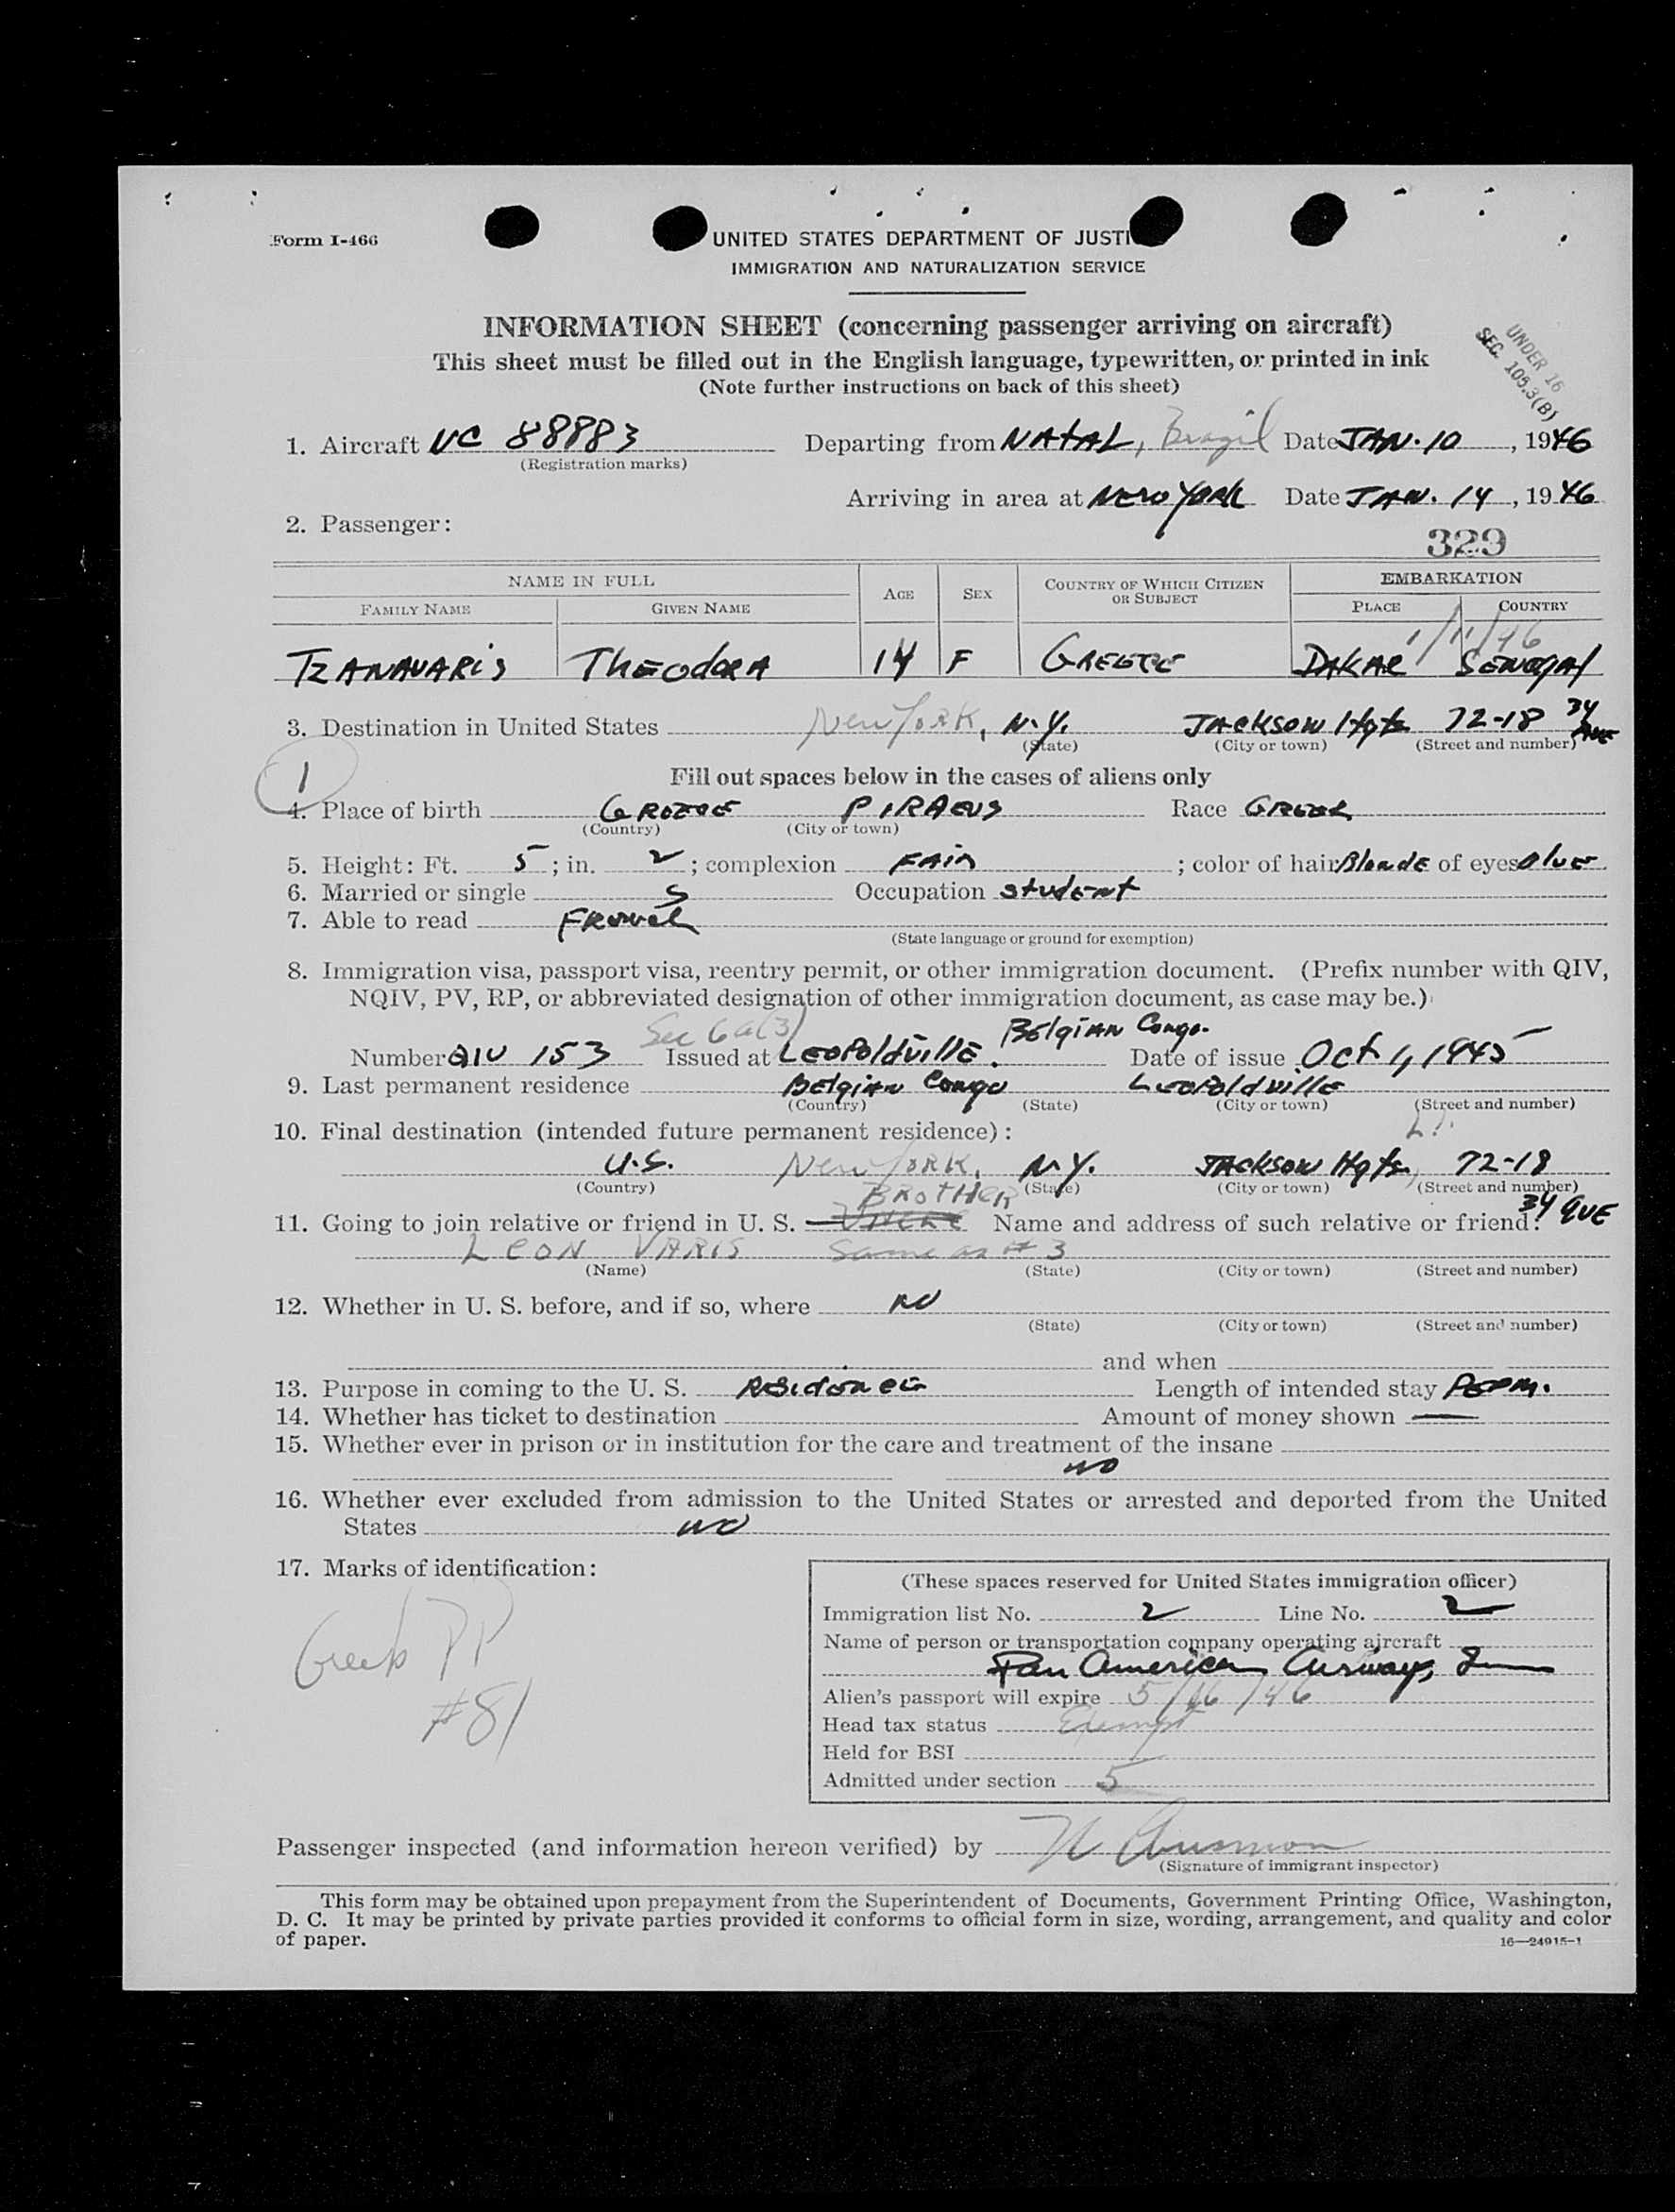 Form I-466
UNITED STATES DEPARTMENT OF JUSTI
IMMIGRATION AND NATURALIZATION SERVICE
INFORMATION SHEET (concerning passenger arriving on aircraft)
This sheet must be filled out in the English language, typewritten, or printed in ink
(Note further instructions on back of this sheet)
UNDER 16
SEC. 105.3(B)
1. Aircraft NC 88883 Departing from NATAL, Brazil Date JAN. 10, 1946
(Registration marks)
Arriving in area at NEW YORK Date JAN. 14, 1946
2. Passenger:
329
NAME IN FULL AGE SEX COUNTRY OF WHICH CITIZEN OR SUBJECT EMBARKATION
FAMILY NAME GIVEN NAME PLACE COUNTRY
1/11/46
TZANAVARIS THEODORA 14 F GREECE DAKAR SENEGAL
3. Destination in United States New York, N.Y. JACKSON Hgts 72-18 34 AVE
(State) (City or town) (Street and number)
1
Fill out spaces below in the cases of aliens only
4. Place of birth GREECE PIRAEUS Race GREEK
(Country) (City or town)
5. Height: Ft. 5; in. 2; complexion FAIR; color of hair Blonde of eyes Blue
6. Married or single S Occupation student
7. Able to read French
(State language or ground for exemption)
8. Immigration visa, passport visa, reentry permit, or other immigration document. (Prefix number with QIV,
NQIV, PV, RP, or abbreviated designation of other immigration document, as case may be.)
Sec 6a(3) Belgian Congo.
Number QIV 153 Issued at LEOPOLDVILLE. Date of issue Oct 1, 1945
9. Last permanent residence Belgian Congo Leopoldville
(Country) (State) (City or town) (Street and number)
10. Final destination (intended future permanent residence):
U.S. New York, N.Y. JACKSON Hgts, 72-18
(Country) (State) (City or town) (Street and number)
BROTHER 34 AVE
11. Going to join relative or friend in U. S. UNCLE Name and address of such relative or friend:
LEON VARIS Same as # 3
(Name) (State) (City or town) (Street and number)
12. Whether in U. S. before, and if so, where NO
(State) (City or town) (Street and number)
and when
13. Purpose in coming to the U. S. Residence Length of intended stay PERM.
14. Whether has ticket to destination Amount of money shown —
15. Whether ever in prison or in institution for the care and treatment of the insane
NO
16. Whether ever excluded from admission to the United States or arrested and deported from the United
States NO
17. Marks of identification:
Greek PP
#81
(These spaces reserved for United States immigration officer)
Immigration list No. 2 Line No. 2
Name of person or transportation company operating aircraft
Pan American Airways,
Alien's passport will expire 5/16/46
Head tax status Exempt
Held for BSI
Admitted under section 5
Passenger inspected (and information hereon verified) by
(Signature of immigrant inspector)
This form may be obtained upon prepayment from the Superintendent of Documents, Government Printing Office, Washington,
D. C. It may be printed by private parties provided it conforms to official form in size, wording, arrangement, and quality and color
of paper.
16—24915-1